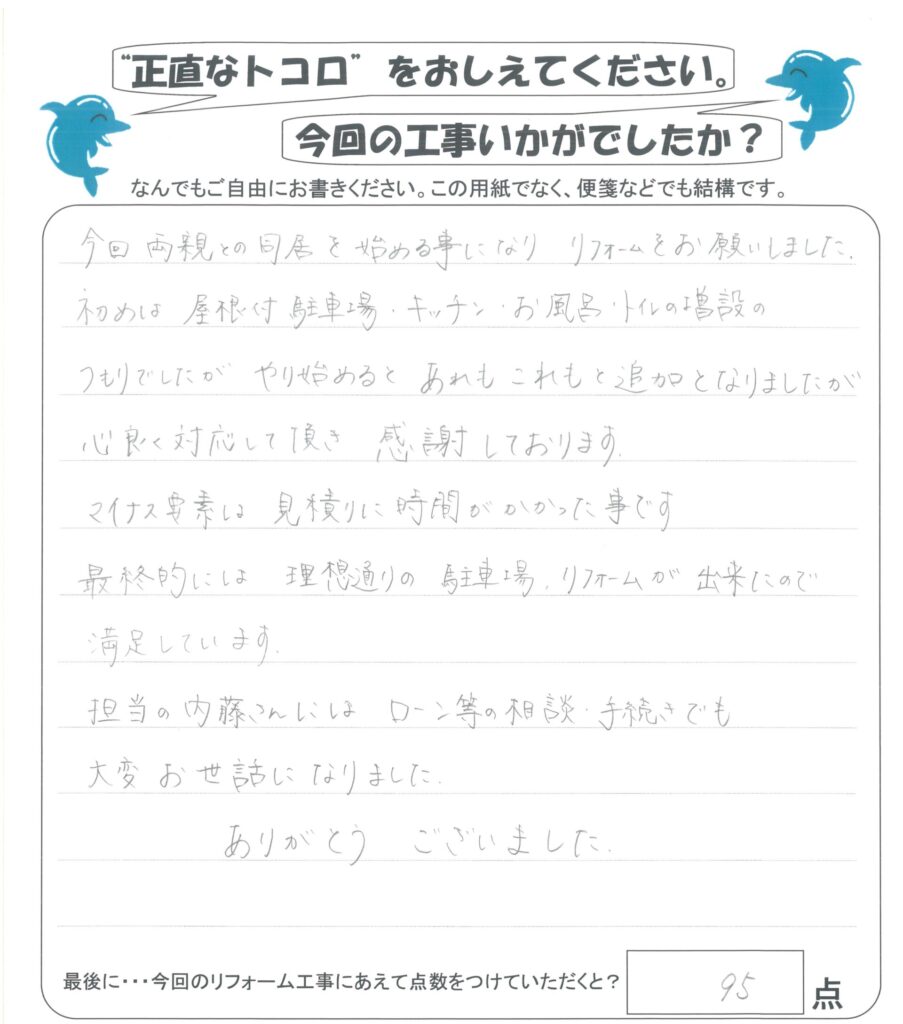 “正直なトコロ”をおしえてください。
今回の工事いかがでしたか？
なんでもご自由にお書きください。この用紙でなく、便箋などでも結構です。
今回 両親との同居を始める事になり リフォームをお願いしました.
初めは 屋根付駐車場・キッチン・お風呂・トイレの増設の
つもりでしたが やり始めると あれも これもと追加となりましたが
心良く対応して頂き 感謝しております.
マイナス要素は 見積りに時間がかかった事です
最終的には 理想通りの 駐車場、リフォームが 出来たので
満足しています.
担当の内藤さんには ローン等の相談・手続きでも
大変お世話になりました.
ありがとう ございました.
最後に・・・今回のリフォーム工事にあえて点数をつけていただくと？ 95 点